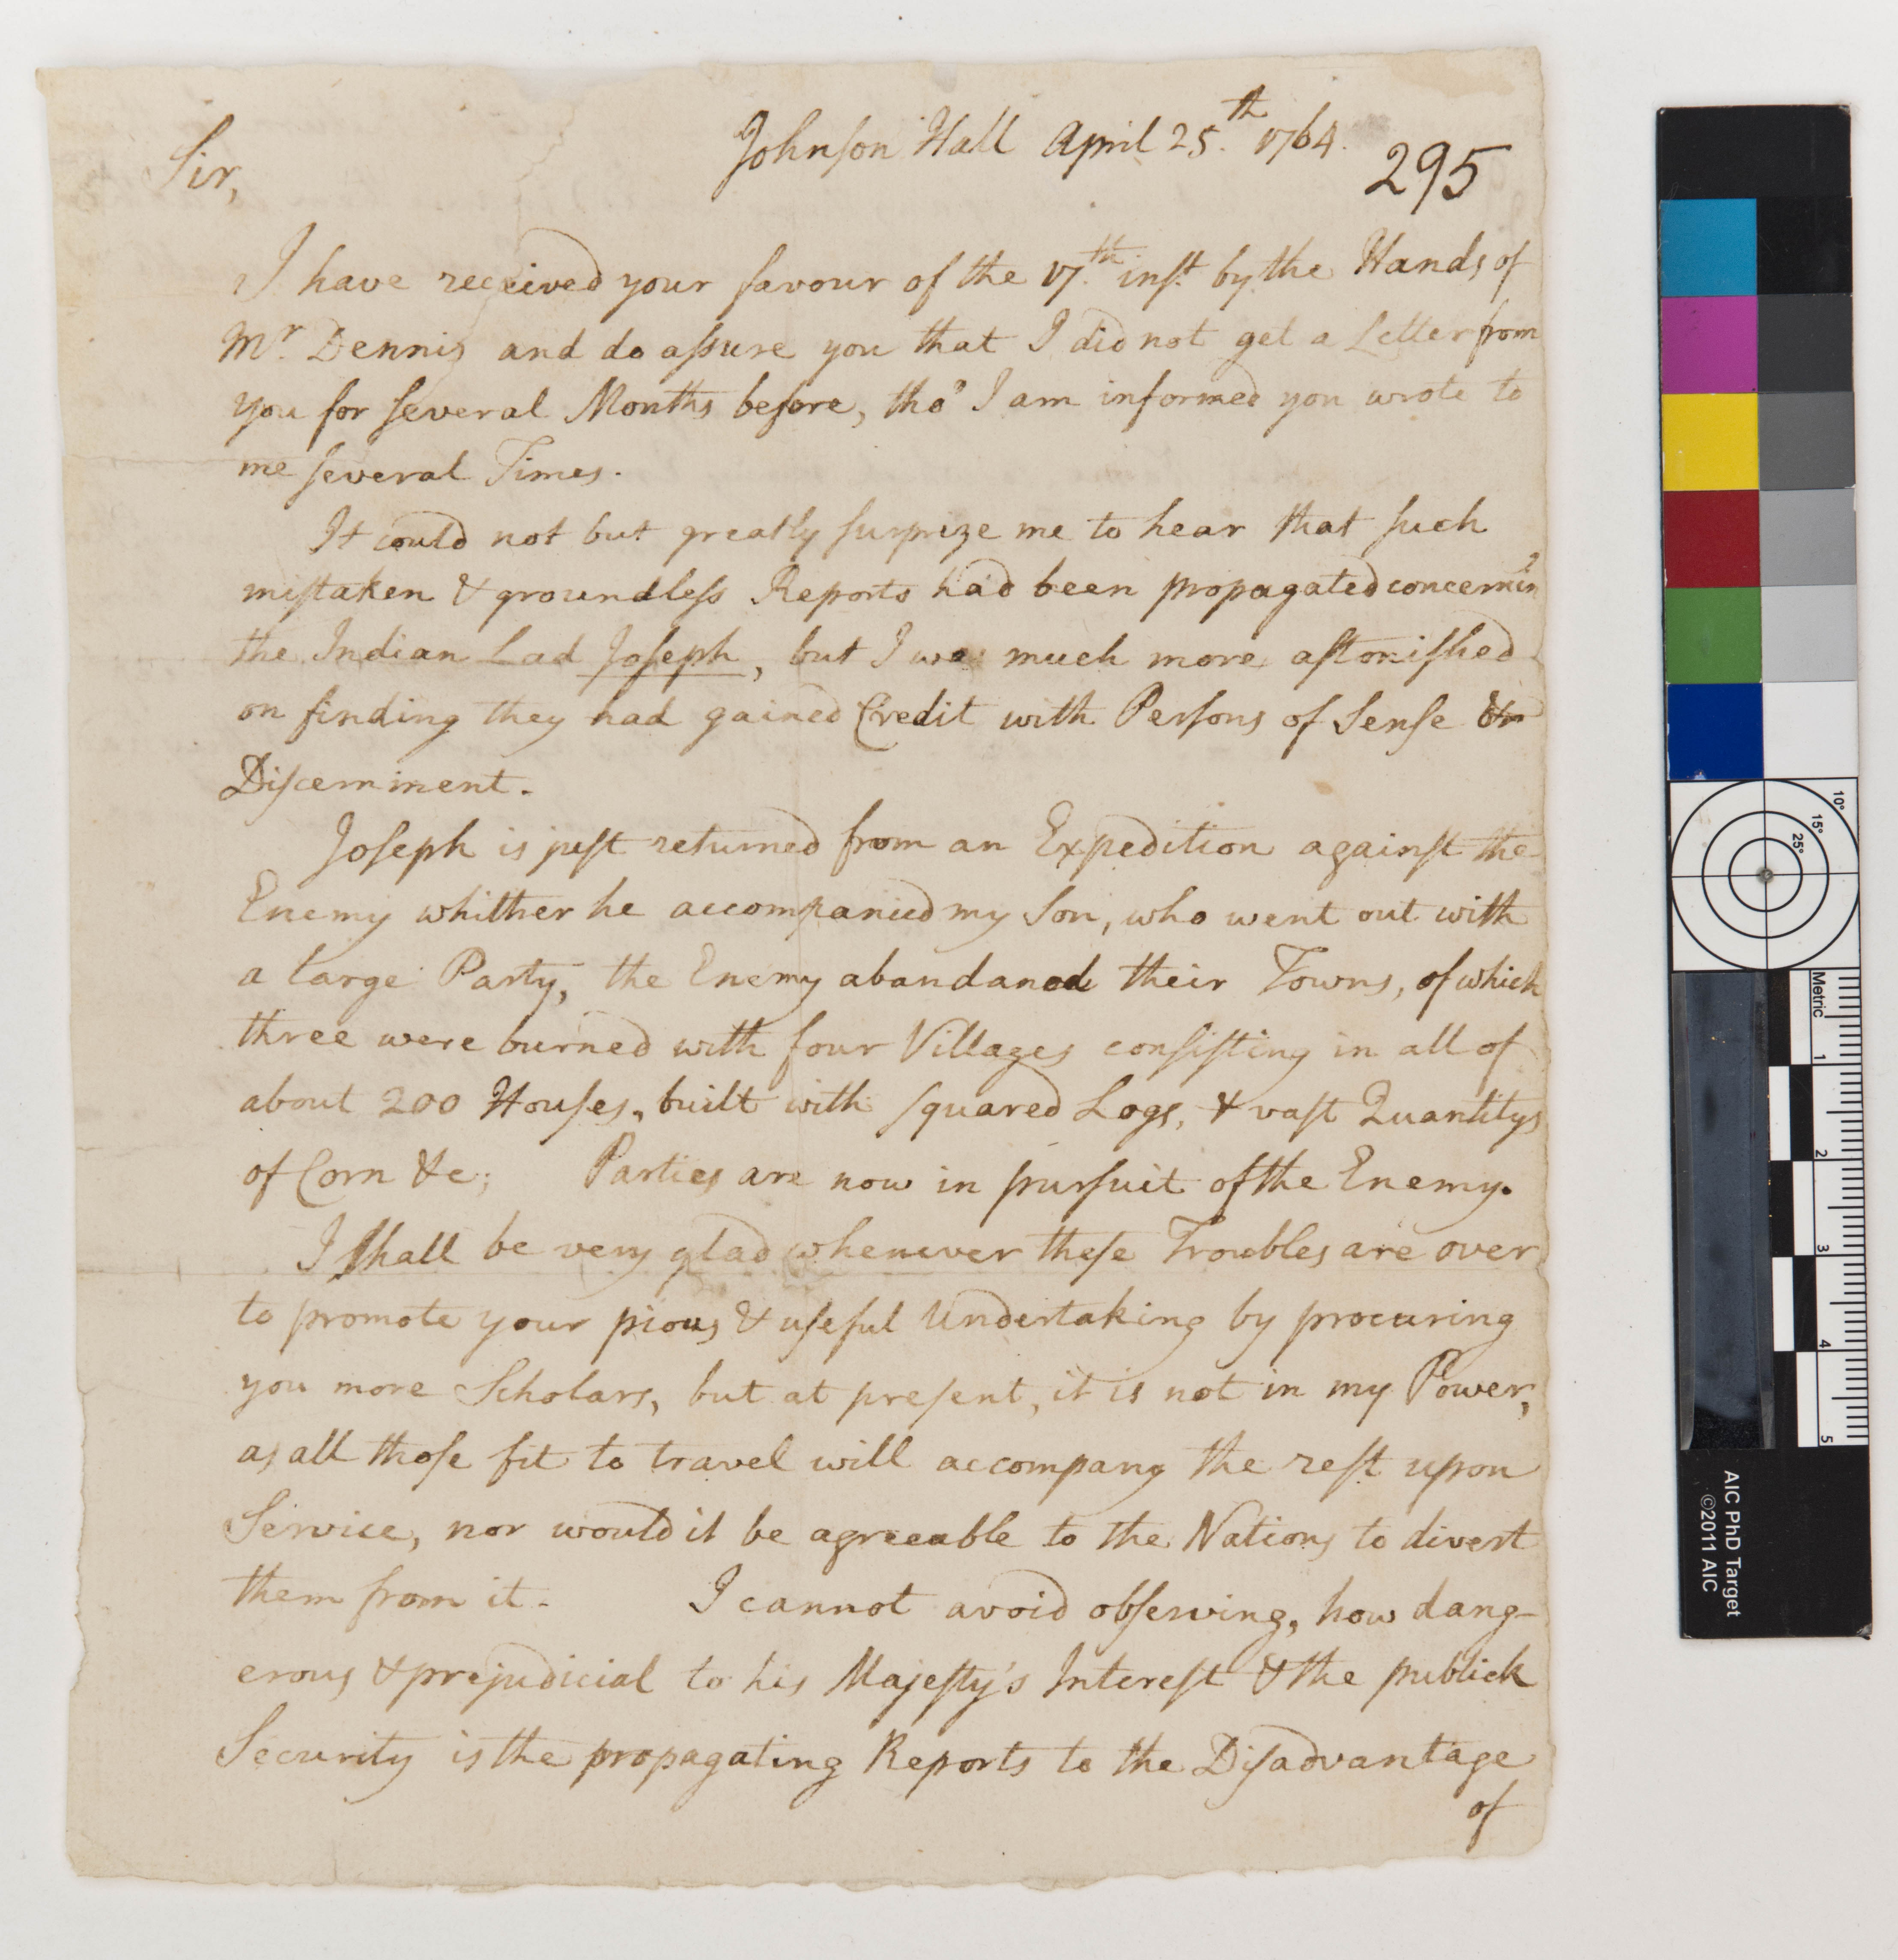 Johnson Hall April 25.th 1764.
295
Sir,
I have received your favour of the 17.th inst. by the Hands of
Mr. Dennis and do assure you that I did not get a Letter from
you for several Months before, tho' I am informed you wrote to
me several Times.
It could not but greatly surprize me to hear that such
mistaken & groundless Reports had been propagated concerning
the Indian Lad Joseph, but I was much more astonished
on finding they had gained Credit with Persons of Sense &
Discernment.
Joseph is just returned from an Expedition against the
Enemy whither he accompanied my Son, who went out with
a large Party, the Enemy abandaned their Towns, of which
three were burned with four Villages consisting in all of
about 200 Houses, built with squared Logs, & vast Quantitys
of Corn &c; Parties are now in pursuit of the Enemy.
I shall be very glad whenever these Troubles are over
to promote your pious & useful Undertaking by procuring
you more Scholars, but at present, it is not in my Power,
as all those fit to travel will accompany the rest upon
Service, nor would it be agreeable to the Nations to divert
them from it. I cannot avoid observing, how dang-
erous & prejudicial to his Majesty's Interest & the publick
Security is the propagating Reports to the Disadvantage
of
10°
15°
25°
Metric
1
2
3
4
5
AIC PhD Target
©2011 AIC